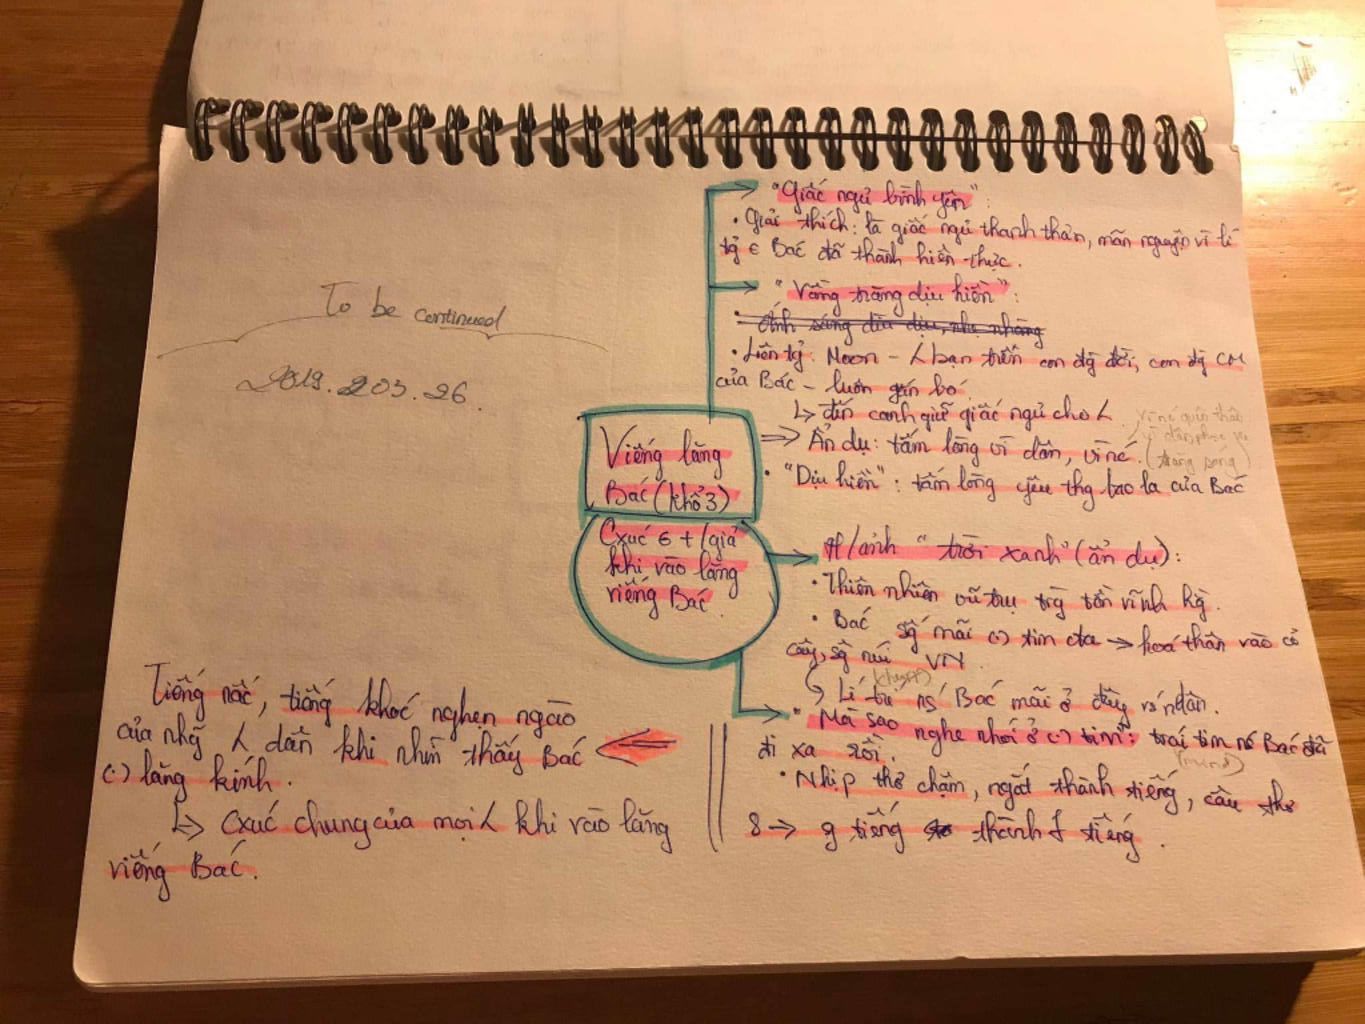 "Giấc ngủ bình yên":
• Giải thích: là giấc ngủ thanh thản, mãn nguyện vì lí
tg ϵ Bác đã thành hiện thực.
"Vầng trăng dịu hiền":
• Ánh sáng dìu dịu, nhẹ nhàng
• Liên tg: Moon - bạn trên con đg đời, con đg CM
của Bác - luôn gắn bó.
↳ đến canh giữ giấc ngủ cho
⇒ Ẩn dụ: tấm lòng vì dân, vì nc.
(trăng sáng)
• "Dịu hiền": tấm lòng yêu thg bao la của Bác
To be continued
2019.03.26.
Viếng lăng
Bác (khổ 3)
Cxúc ϵ t/giả
khi vào lăng
viếng Bác.
H/ảnh "trời xanh" (ẩn dụ):
• Thiên nhiên vũ trụ trg tồn vĩnh hg.
• Bác sg mãi () tim cta → hoá thân vào cỏ
cây, sg núi VN.
(heart)
↳ Lí trí ns Bác mãi ở đây vs ndân.
"Mà sao nghe nhói ở () tim": trái tim ns Bác đã
đi xa rồi.
(mind)
• Nhịp thơ chậm, ngắt thành tiếng, câu thơ
8 → 9 tiếng thành 7 tiếng.
Tiếng nấc, tiếng khóc nghẹn ngào
của nhg dân khi nhìn thấy Bác
() lăng kính.
↳ Cxúc chung của mọi khi vào lăng
viếng Bác.